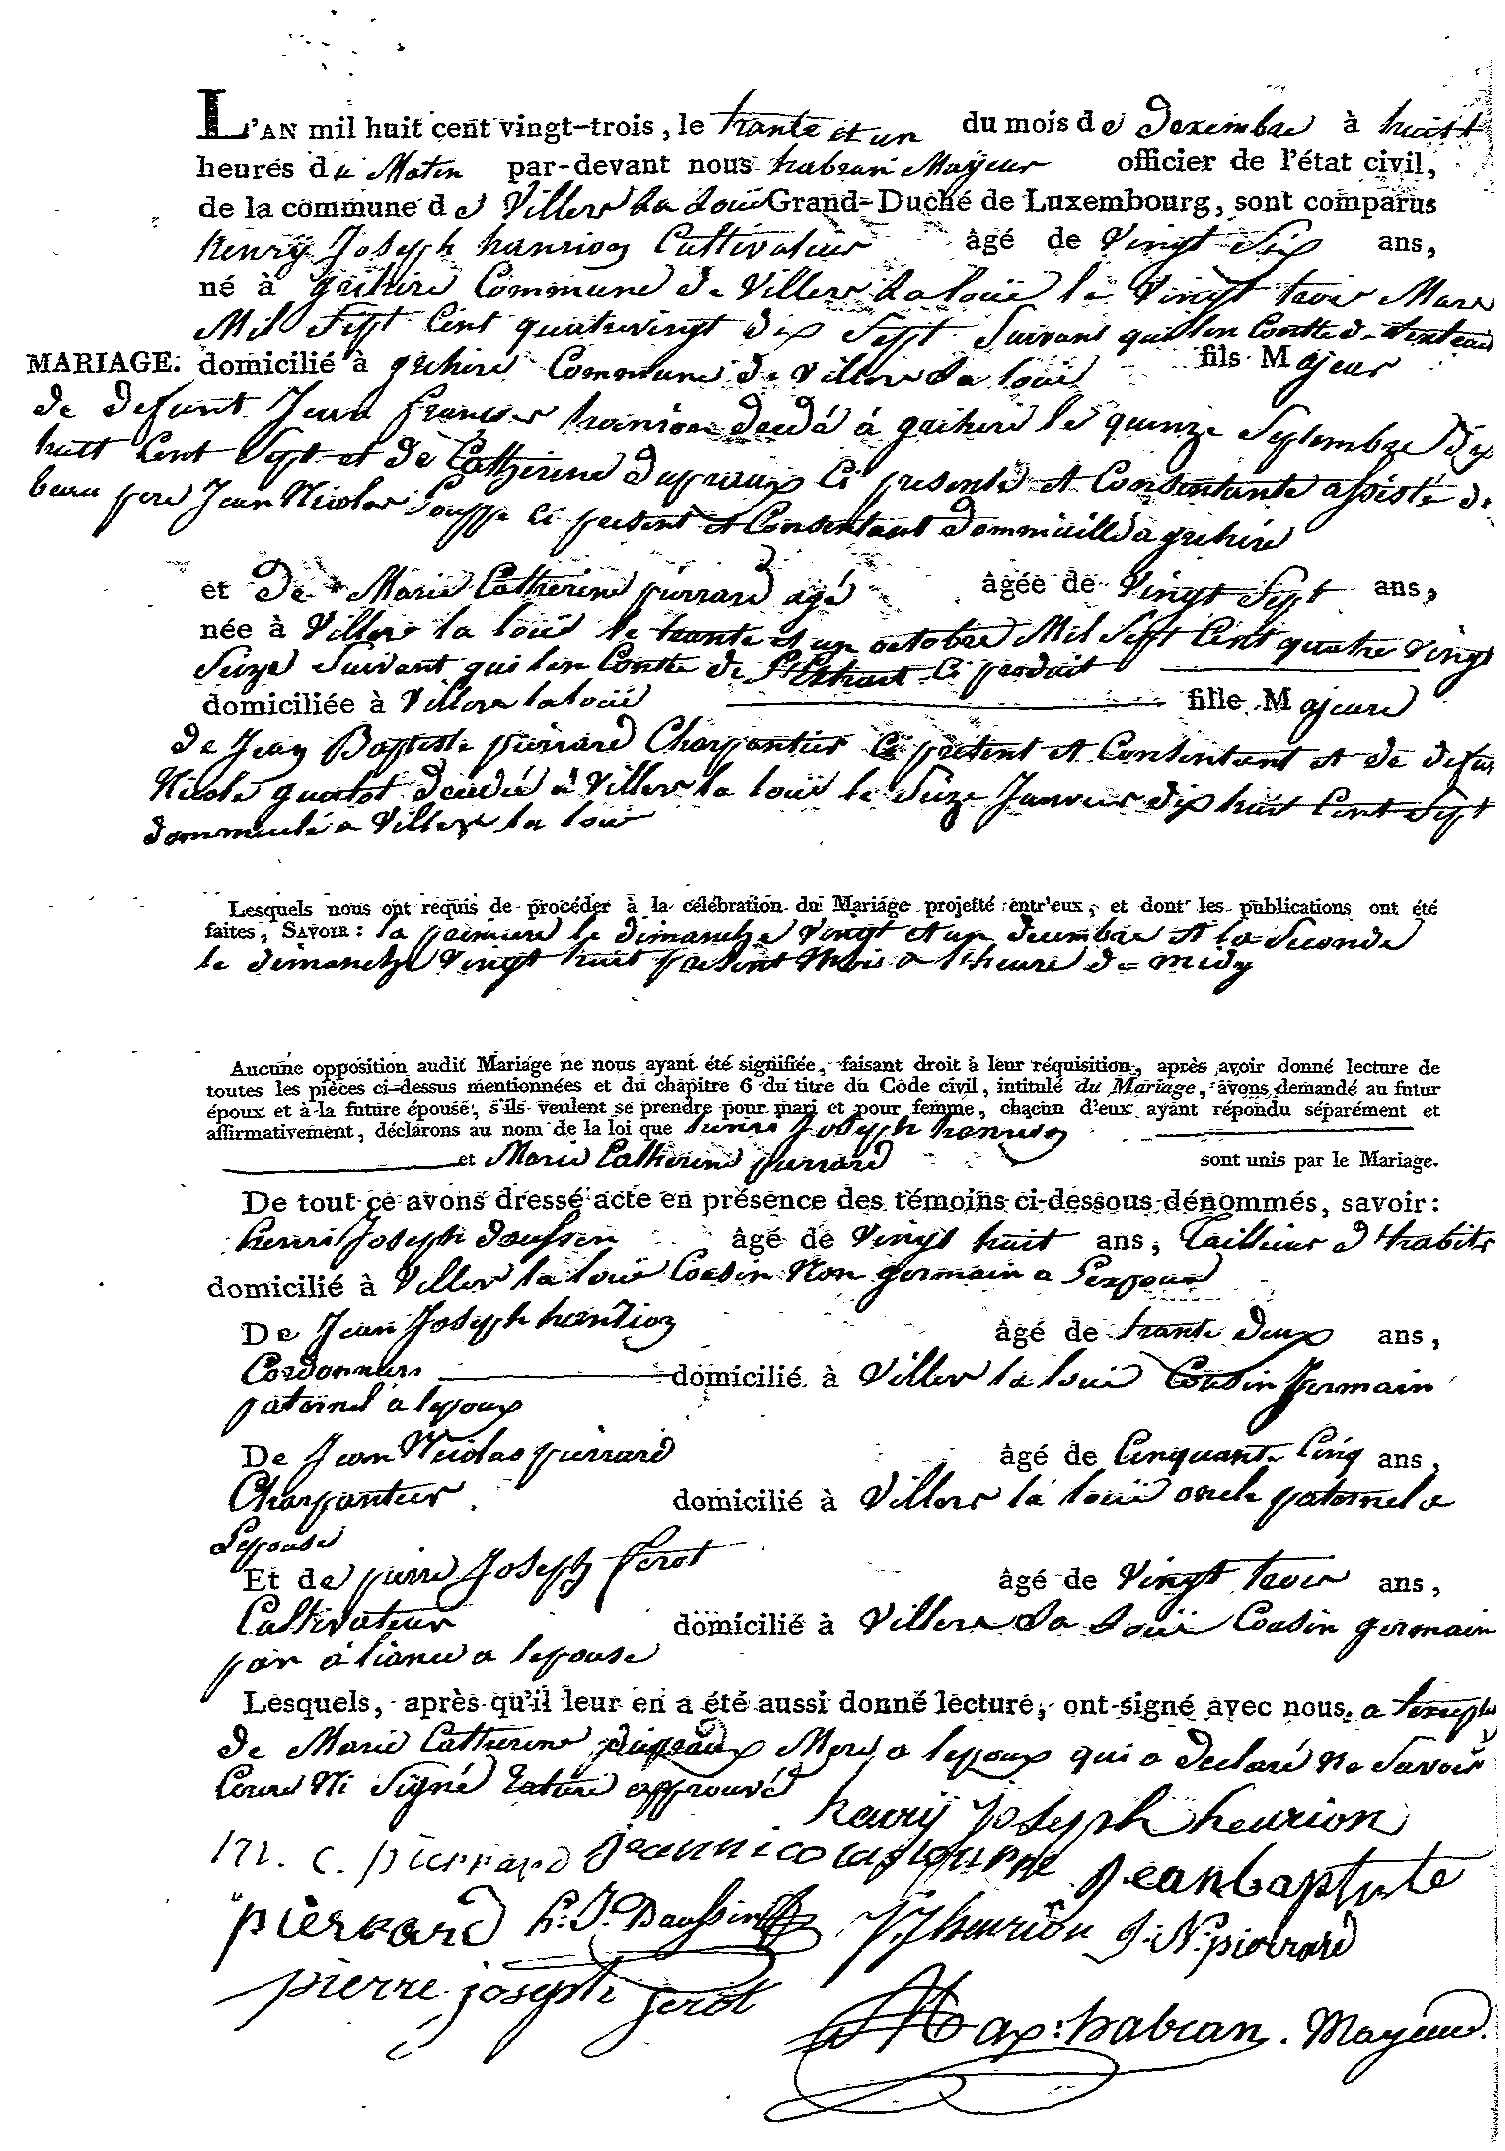 L'AN mil huit cent vingt-trois, le trante et un du mois de Dexembre à huitt
heures du Matin par-devant nous habran Mayeur officier de l'état civil,
de la commune de Villers La Loüe Grand-Duché de Luxembourg, sont comparus
henry Joseph hanrion Cultivateur âgé de Vingt Six ans,
né à grihire Commune de Villers La loüe le Vingt trois Mars
Mil Sept Cent quatrevingt dix Sept Suivant quil en Conste
MARIAGE. domicilié à grihire Commune de Villers La loüe fils Majeur
de defunt Jean francois hanrion decedé à grihire le quinze Septembre Dix
huit Cent Sept et de Catherine dupreux Ci presente et Consentante assisté de
beau pere Jean Nicolas Ci present et Consentant Dommicille a grihire
et De Marie Catherine pierrard agé âgée de Vingt Sept ans,
née à Villers la loüe le trante et un octobre Mil Sept Cent quatre vingt
Seize Suivant quil en Conste de L'Extrait Ci produit
domiciliée à Villers la loüe fille Majeure
de Jean Baptiste pierrard Charpantier Ci present et Consentant et de defunt
Nicole guatot decedée à Villers la loüe le Seize Janvier dix huit Cent Sept
dommicilé a Villers la loüe
Lesquels nous ont requis de procéder à la célébration du Mariage projetté entr'eux, et dont les publications ont été
faites, SAVOIR : la premiere le dimanche vingt et un decembre et la Seconde
le dimanche Vingt huit present Mois a l'heure de midy
Aucune opposition audit Mariage ne nous ayant été signifiée, faisant droit à leur réquisition, après avoir donné lecture de
toutes les pièces ci-dessus mentionnées et du chapitre 6 du titre du Code civil, intitulé du Mariage, avons demandé au futur
époux et à la future épouse, s'ils veulent se prendre pour mari et pour femme, chacun d'eux ayant répondu séparément et
affirmativement, déclarons au nom de la loi que henri Joseph hanrion
et Marie Catherine pierrard sont unis par le Mariage.
De tout ce avons dressé acte en présence des témoins ci-dessous dénommés, savoir :
henri Joseph daussin âgé de Vingt huit ans, Tailleur d'habits
domicilié à Villers la loüe Cousin Non germain a L'epoux
De Jean Joseph hanrion âgé de trante deux ans,
Cordonnier domicilié à Villers la loüe Cousin Jermain
paternel a lepoux
De Jean Nicolas pierrard âgé de Cinquante Cinq ans,
Charpantier domicilié à Villers la loüe oncle paternel a
Lepouse
Et de pierre Joseph ferot âgé de Vingt trois ans,
Cultivateur domicilié à Villers La Loüe Cousin germain
par aliance a lepouse
Lesquels, après qu'il leur en a été aussi donné lecture, ont signé avec nous a
de Marie Catherine dupreux Mere a lepoux qui a declaré ne Savoir
Ni Signé rature approuvé
henry joseph henrion
m. c. pierrard jean nicolas jeanbaptiste
pierrard h. J. Daussin J J henrion J. N. pierrard
pierre joseph ferot
Max: habran. Mayeur.